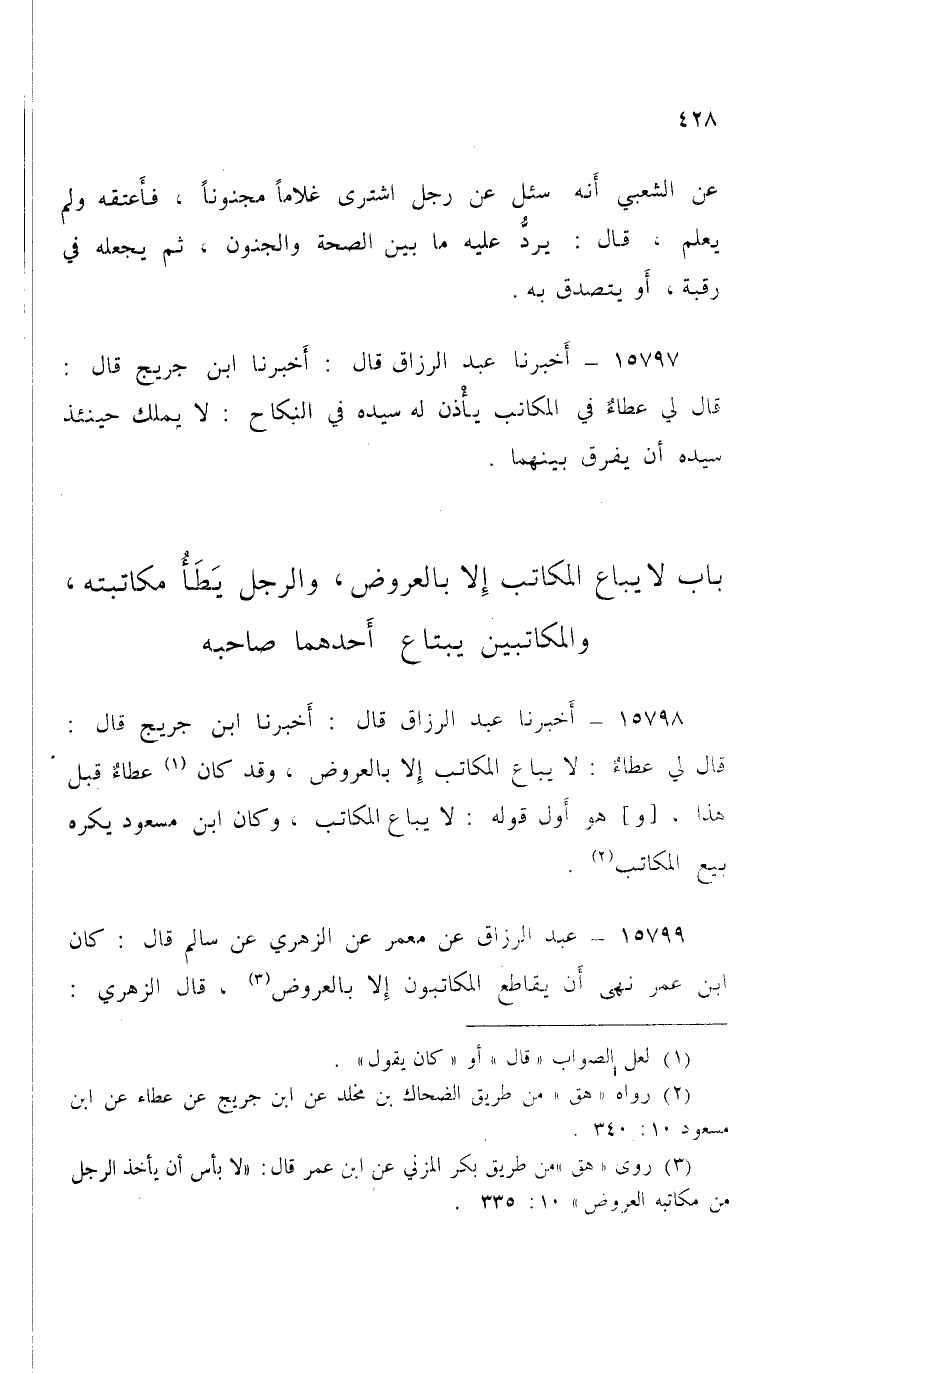 ٤٢٨
عن الشعبي أَنه سئل عن رجل اشترى غلاماً مجنوناً ، فأَعتقه ولم
يعلم ، قال : يردُّ عليه ما بين الصحة والجنون ، ثم يجعله في
رقبة ، أَو يتصدق به .
١٥٧٩٧ – أَخبرنا عبد الرزاق قال : أَخبرنا ابن جريج قال :
قال لي عطاءٌ في المكاتب يأْذن له سيده في النكاح : لا يملك حينئذ
سيده أن يفرق بينهما .
باب لا يباع المكاتب إلا بالعروض ، والرجل يَطَأُ مكاتبته ،
والمكاتبين يبتاع أَحدهما صاحبه
١٥٧٩٨ – أَخبرنا عبد الرزاق قال : أَخبرنا ابن جريج قال :
قال لي عطاءٌ : لا يباع المكاتب إلا بالعروض ، وقد كان (١) عطاءٌ قبل
هذا . [و] هو أَول قوله : لا يباع المكاتب ، وكان ابن مسعود يكره
بيع المكاتب(٢) .
١٥٧٩٩ – عبد الرزاق عن معمر عن الزهري عن سالم قال : كان
ابن عمر نهى أَن يقاطع المكاتبون إلا بالعروض(٣) ، قال الزهري :
(١) لعل الصواب « قال » أو « كان يقول » .
(٢) رواه « هق » من طريق الضحاك بن مخلد عن ابن جريج عن عطاء عن ابن
مسعود ١٠ : ٣٤٠ .
(٣) روى « هق » من طريق بكر المزني عن ابن عمر قال : « لا بأس أن يأخذ الرجل
من مكاتبه العروض » ١٠ : ٣٣٥ .